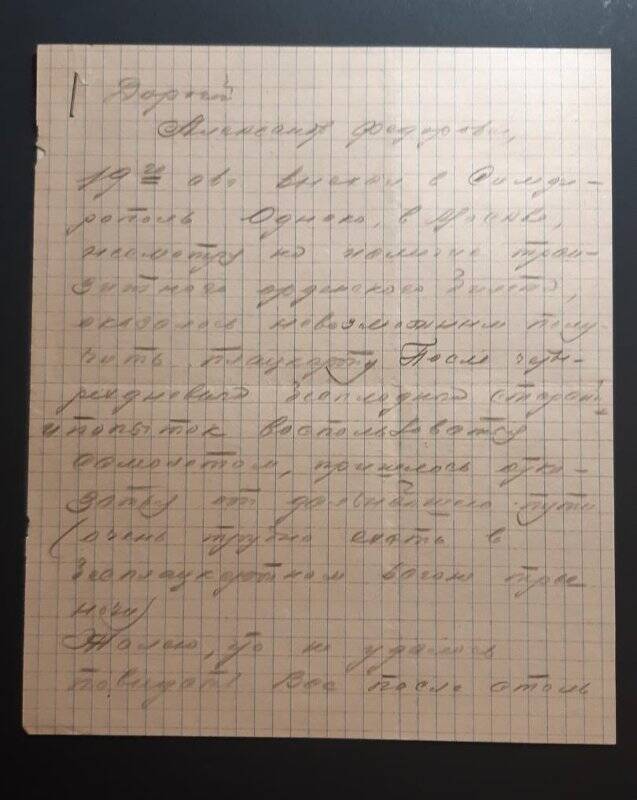 Дорогой
Александр Федорович,
19го авг выехал в Симфе-
рополь Однако, в Москве,
несмотря на наличие тран-
зитного орденского билета,
оказалось невозможным полу-
чить плацкарту После четы-
рехдневных бесплодных стараний
и попыток воспользоваться
самолетом, пришлось отка-
заться от дальнейшего пути
(очень трудно ехать в
бесплацкартном вагоне трое
ночи)
Жалею, что не удалось
повидать Вас после столь